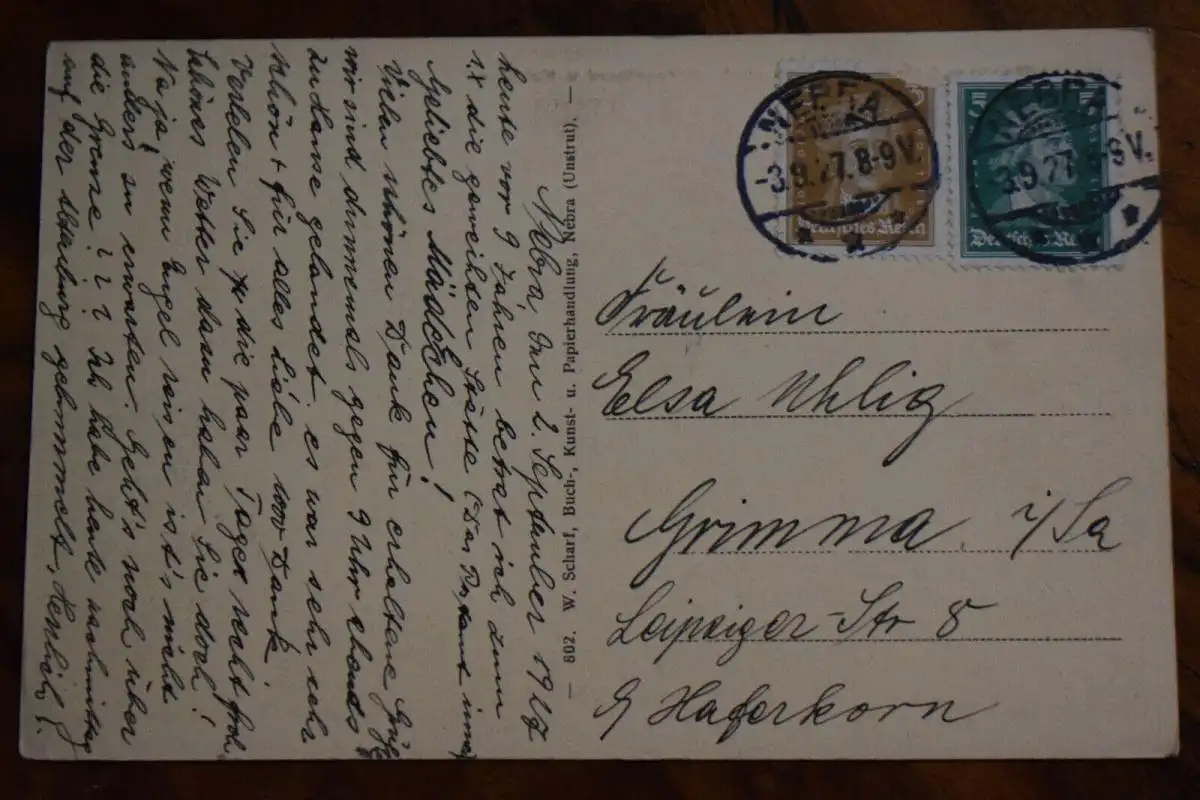 Nebra, den 2. September 1927
heute vor 9 Jahren betrat ich zum
1. x die geweihten Stätte (Das
Geliebtes Mädchen!
Vielen schönen Dank für erhaltene Grüße
wir sind ohnmals gegen 9 Uhr abends
zu Hause gelandet. es war sehr sehr
schön + für alles Liebe 1000 Dank
Verleben Sie die paar Tage recht froh,
schönes Wetter dazu haben Sie doch!
Na ja, wenn Engel reisen ist's nicht
anders zu erwarten. Geht's noch über
die Grenze? ? ? Ich habe heute nachmittag
auf der Altenburg gebummelt, Herzlich,
802. W. Scharf, Buch-, Kunst- u. Papierhandlung, Nebra (Unstrut).
NEBRA
-3.9.27.8-9 V.
Deutsches Reich
NEBRA
3.9.27.8-9 V.
5
Deutsches Reich
Fräulein
Elsa Uhlig
Grimma i/Sa
Leipziger-Str 8
b/ Haferkorn